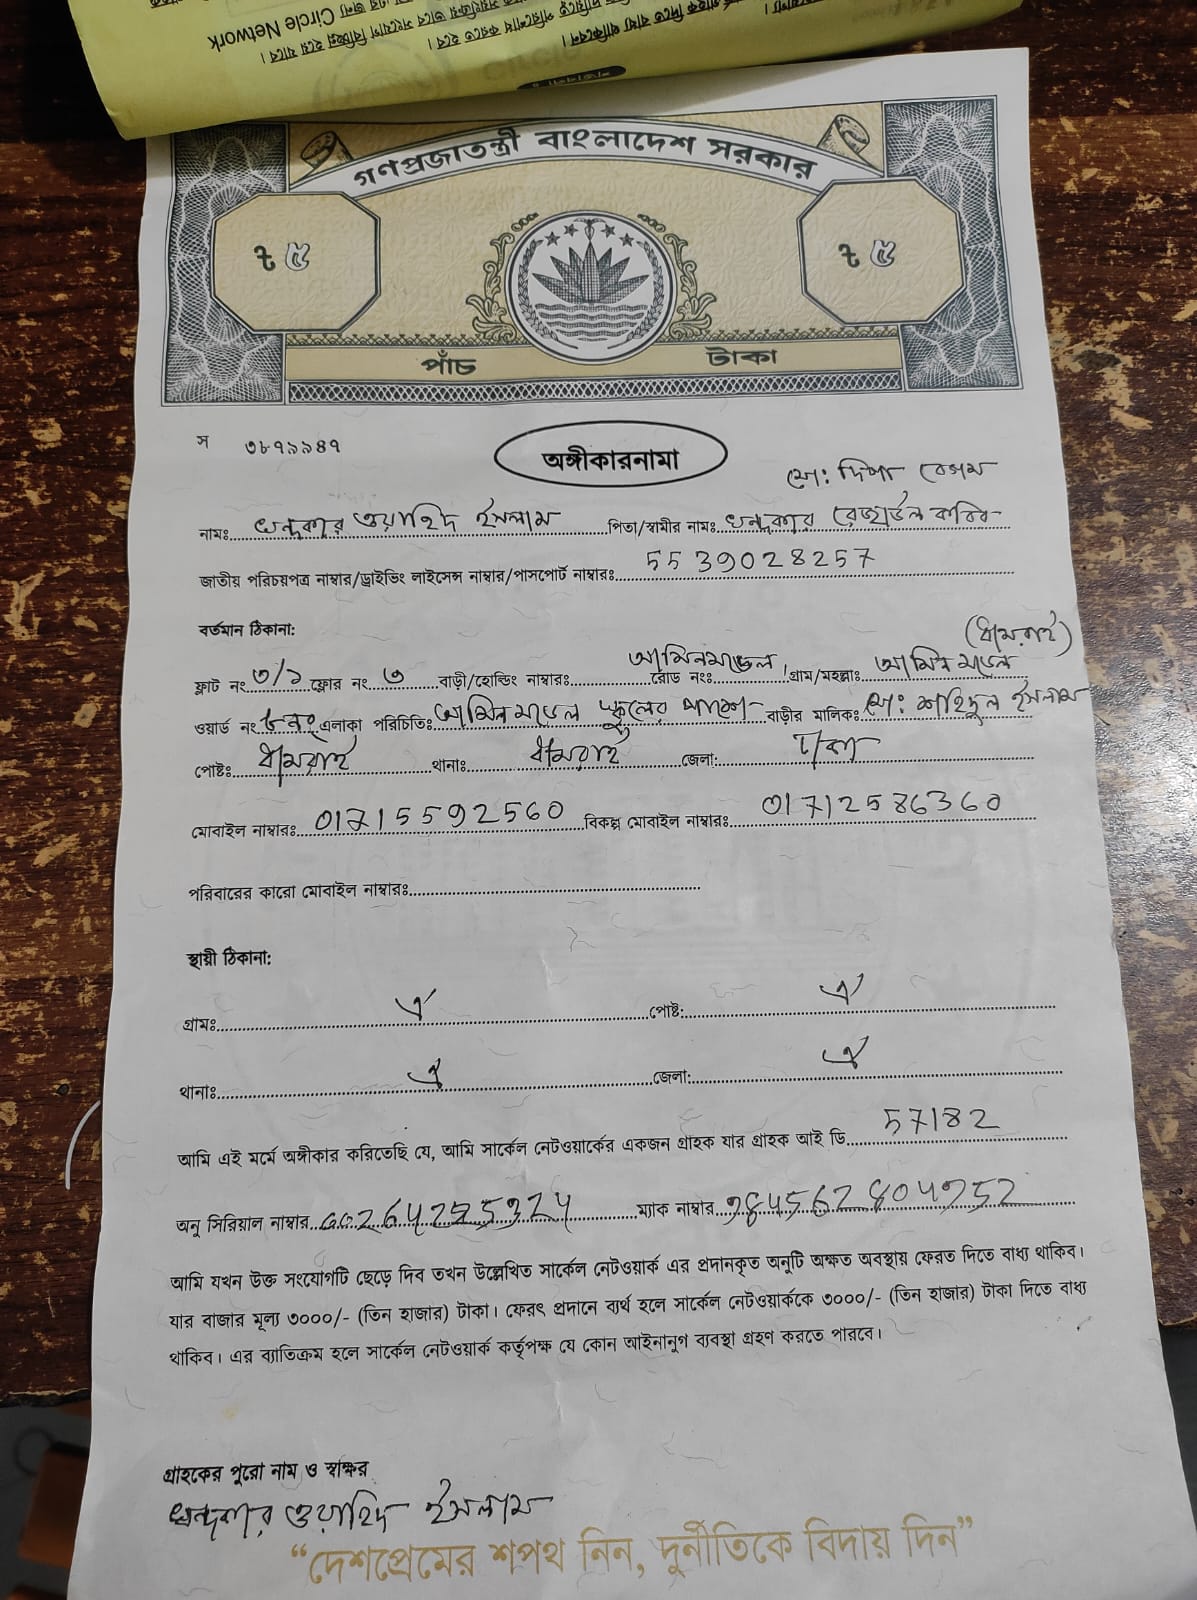 Circle Network
গণপ্রজাতন্ত্রী বাংলাদেশ সরকার
৳ ৫ ৳ ৫
পাঁচ টাকা
স ৩৮৭৯৯৪৭
অঙ্গীকারনামা
নামঃ খন্দকার ওয়াহিদ ইসলাম পিতা/স্বামীর নামঃ খন্দকার রেজাউল কবির
জাতীয় পরিচয়পত্র নাম্বার/ড্রাইভিং লাইসেন্স নাম্বার/পাসপোর্ট নাম্বারঃ 5539028257
বর্তমান ঠিকানা:
(ধামরাই)
ফ্লাট নং ৩/১ ফ্লোর নং ৩ বাড়ী/হোল্ডিং নাম্বারঃ আমিনমডেল রোড নংঃ গ্রাম/মহল্লাঃ আমিন মডেল
ওয়ার্ড নং এলাকা পরিচিতিঃ আমিন মডেল স্কুলের পাশে বাড়ীর মালিকঃ মো: শাহিদুল ইসলাম
পোষ্টঃ ধামরাই থানাঃ ধামরাই জেলা: ঢাকা
মোবাইল নাম্বারঃ 01715592560 বিকল্প মোবাইল নাম্বারঃ 01712586360
পরিবারের কারো মোবাইল নাম্বারঃ
স্থায়ী ঠিকানা:
গ্রামঃ ঐ পোষ্ট: ঐ
থানাঃ ঐ জেলা: ঐ
আমি এই মর্মে অঙ্গীকার করিতেছি যে, আমি সার্কেল নেটওয়ার্কের একজন গ্রাহক যার গ্রাহক আই ডি 57182
অনু সিরিয়াল নাম্বার ম্যাক নাম্বার
আমি যখন উক্ত সংযোগটি ছেড়ে দিব তখন উল্লেখিত সার্কেল নেটওয়ার্ক এর প্রদানকৃত অনুটি অক্ষত অবস্থায় ফেরত দিতে বাধ্য থাকিব।
যার বাজার মূল্য ৩০০০/- (তিন হাজার) টাকা। ফেরৎ প্রদানে ব্যর্থ হলে সার্কেল নেটওয়ার্ককে ৩০০০/- (তিন হাজার) টাকা দিতে বাধ্য
থাকিব। এর ব্যাতিক্রম হলে সার্কেল নেটওয়ার্ক কর্তৃপক্ষ যে কোন আইনানুগ ব্যবস্থা গ্রহণ করতে পারবে।
গ্রাহকের পুরো নাম ও স্বাক্ষর
খন্দকার ওয়াহিদ ইসলাম
“দেশপ্রেমের শপথ নিন, দুর্নীতিকে বিদায় দিন”